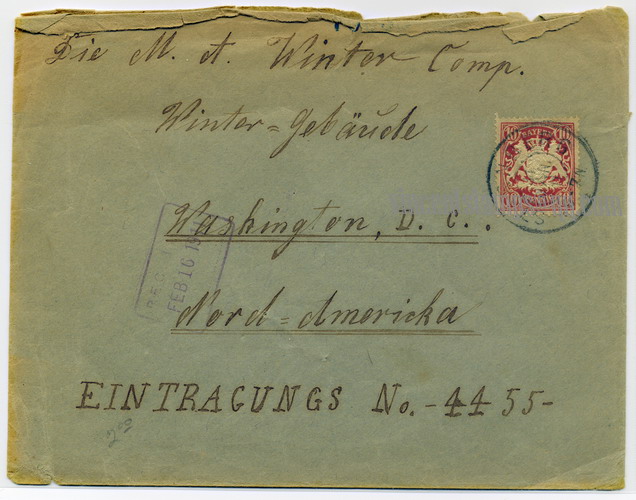 Die M. A. Winter Comp.
Winter=Gebäude
10 BAYERN 10
Washington, D. C..
REC
FEB 16 19
Nord=Amerika
EINTRAGUNGS No. -4455-
200